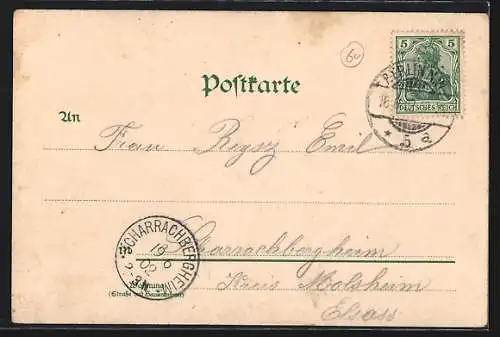 60
Postkarte
5 5
BERLIN
DEUTSCHES REICH
* 5 a
An
Frau Reysz Emil
Scharrachbergheim
Kreis Molsheim
Elsass
SCHARRACHBERGHEIM
19 6
02
2-3N
Wohnung
(Straße und Hausnummer)